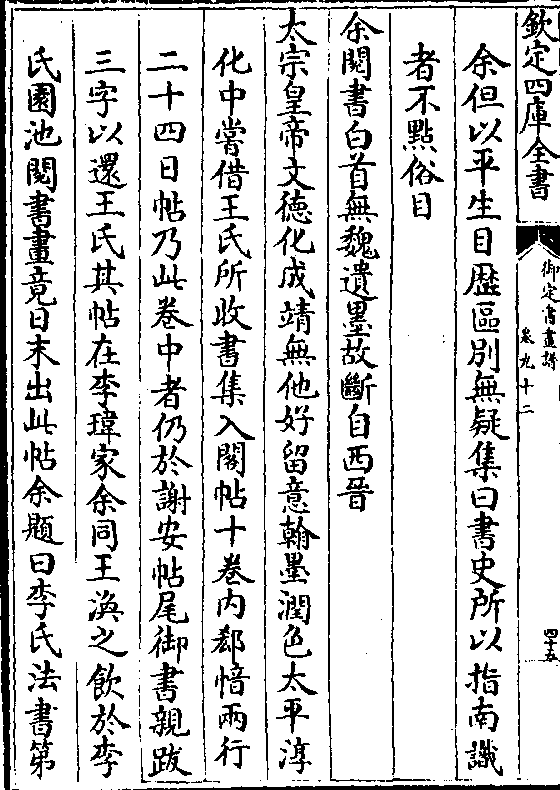 欽定四庫全書
御定書畫譜
卷九十二
四十五
余但以平生目歷區別無疑集曰書史所以指南識
者不點俗目
余閱書白首無魏遺墨故斷自西晉
太宗皇帝文德化成靖無他好留意翰墨潤色太平淳
化中嘗借王氏所收書集入閣帖十卷内郗愔兩行
二十四日帖乃此卷中者仍於謝安帖尾御書親跋
三字以還王氏其帖在李瑋家余同王渙之飲於李
氏園池閱書畫竟日末出此帖余題曰李氏法書第